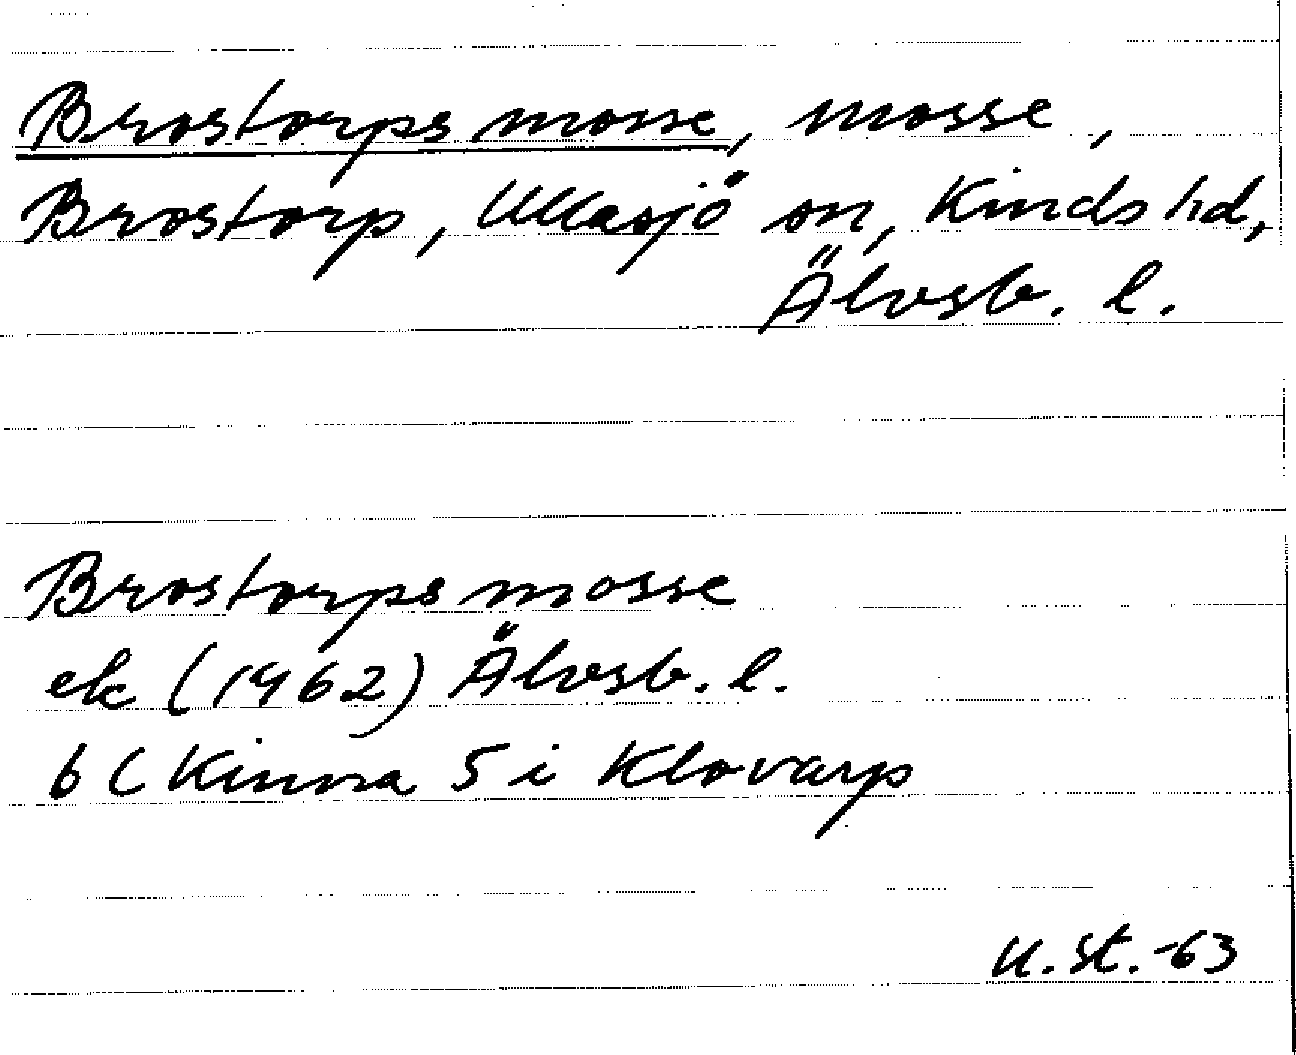 Brostorps mosse, mosse,
Brostorp, Ullasjö sn, Kinds hd,
Älvsb. l.
Brostorps mosse
ek (1962) Älvsb. l.
6 C Kinna 5 i Klovarp
U. St. -63